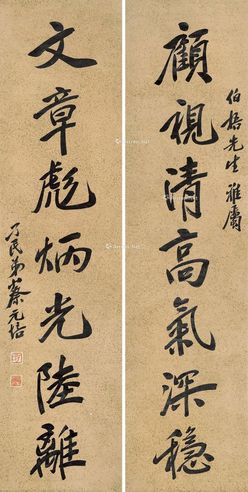 顧視清高氣深穩
伯梧先生雅屬
文章彪炳光陸離
孑民弟蔡元培